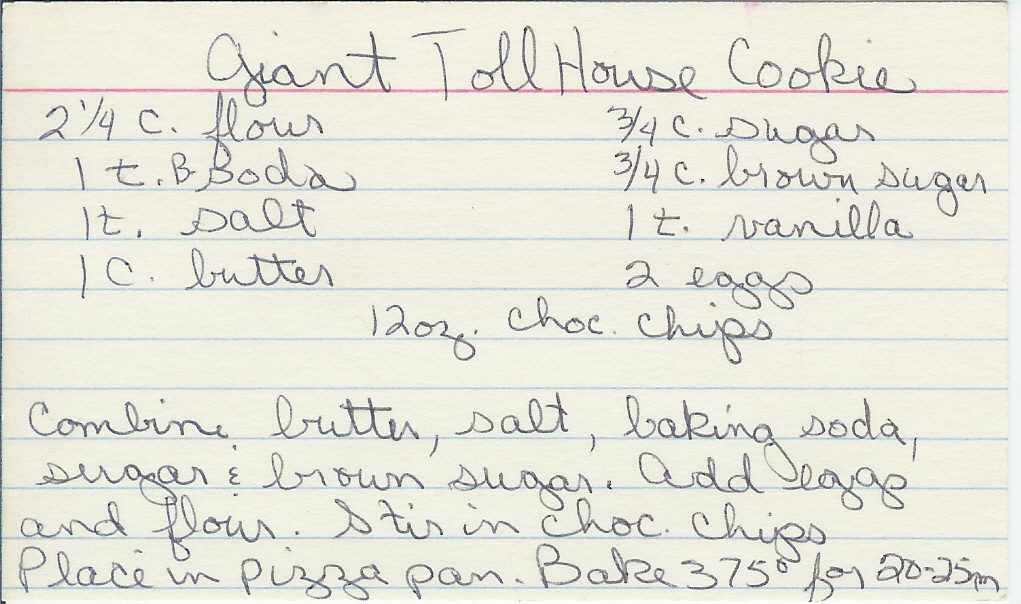 Giant Toll House Cookie
2 1/4 c. flour 3/4 c. sugar
1 t. B. Soda 3/4 c. brown sugar
1 t. salt 1 t. vanilla
1 C. butter 2 eggs
12 oz. choc. chips
Combine butter, salt, baking soda,
sugar & brown sugar. Add eggs
and flour. Stir in choc. chips
Place in pizza pan. Bake 375° for 20-25m